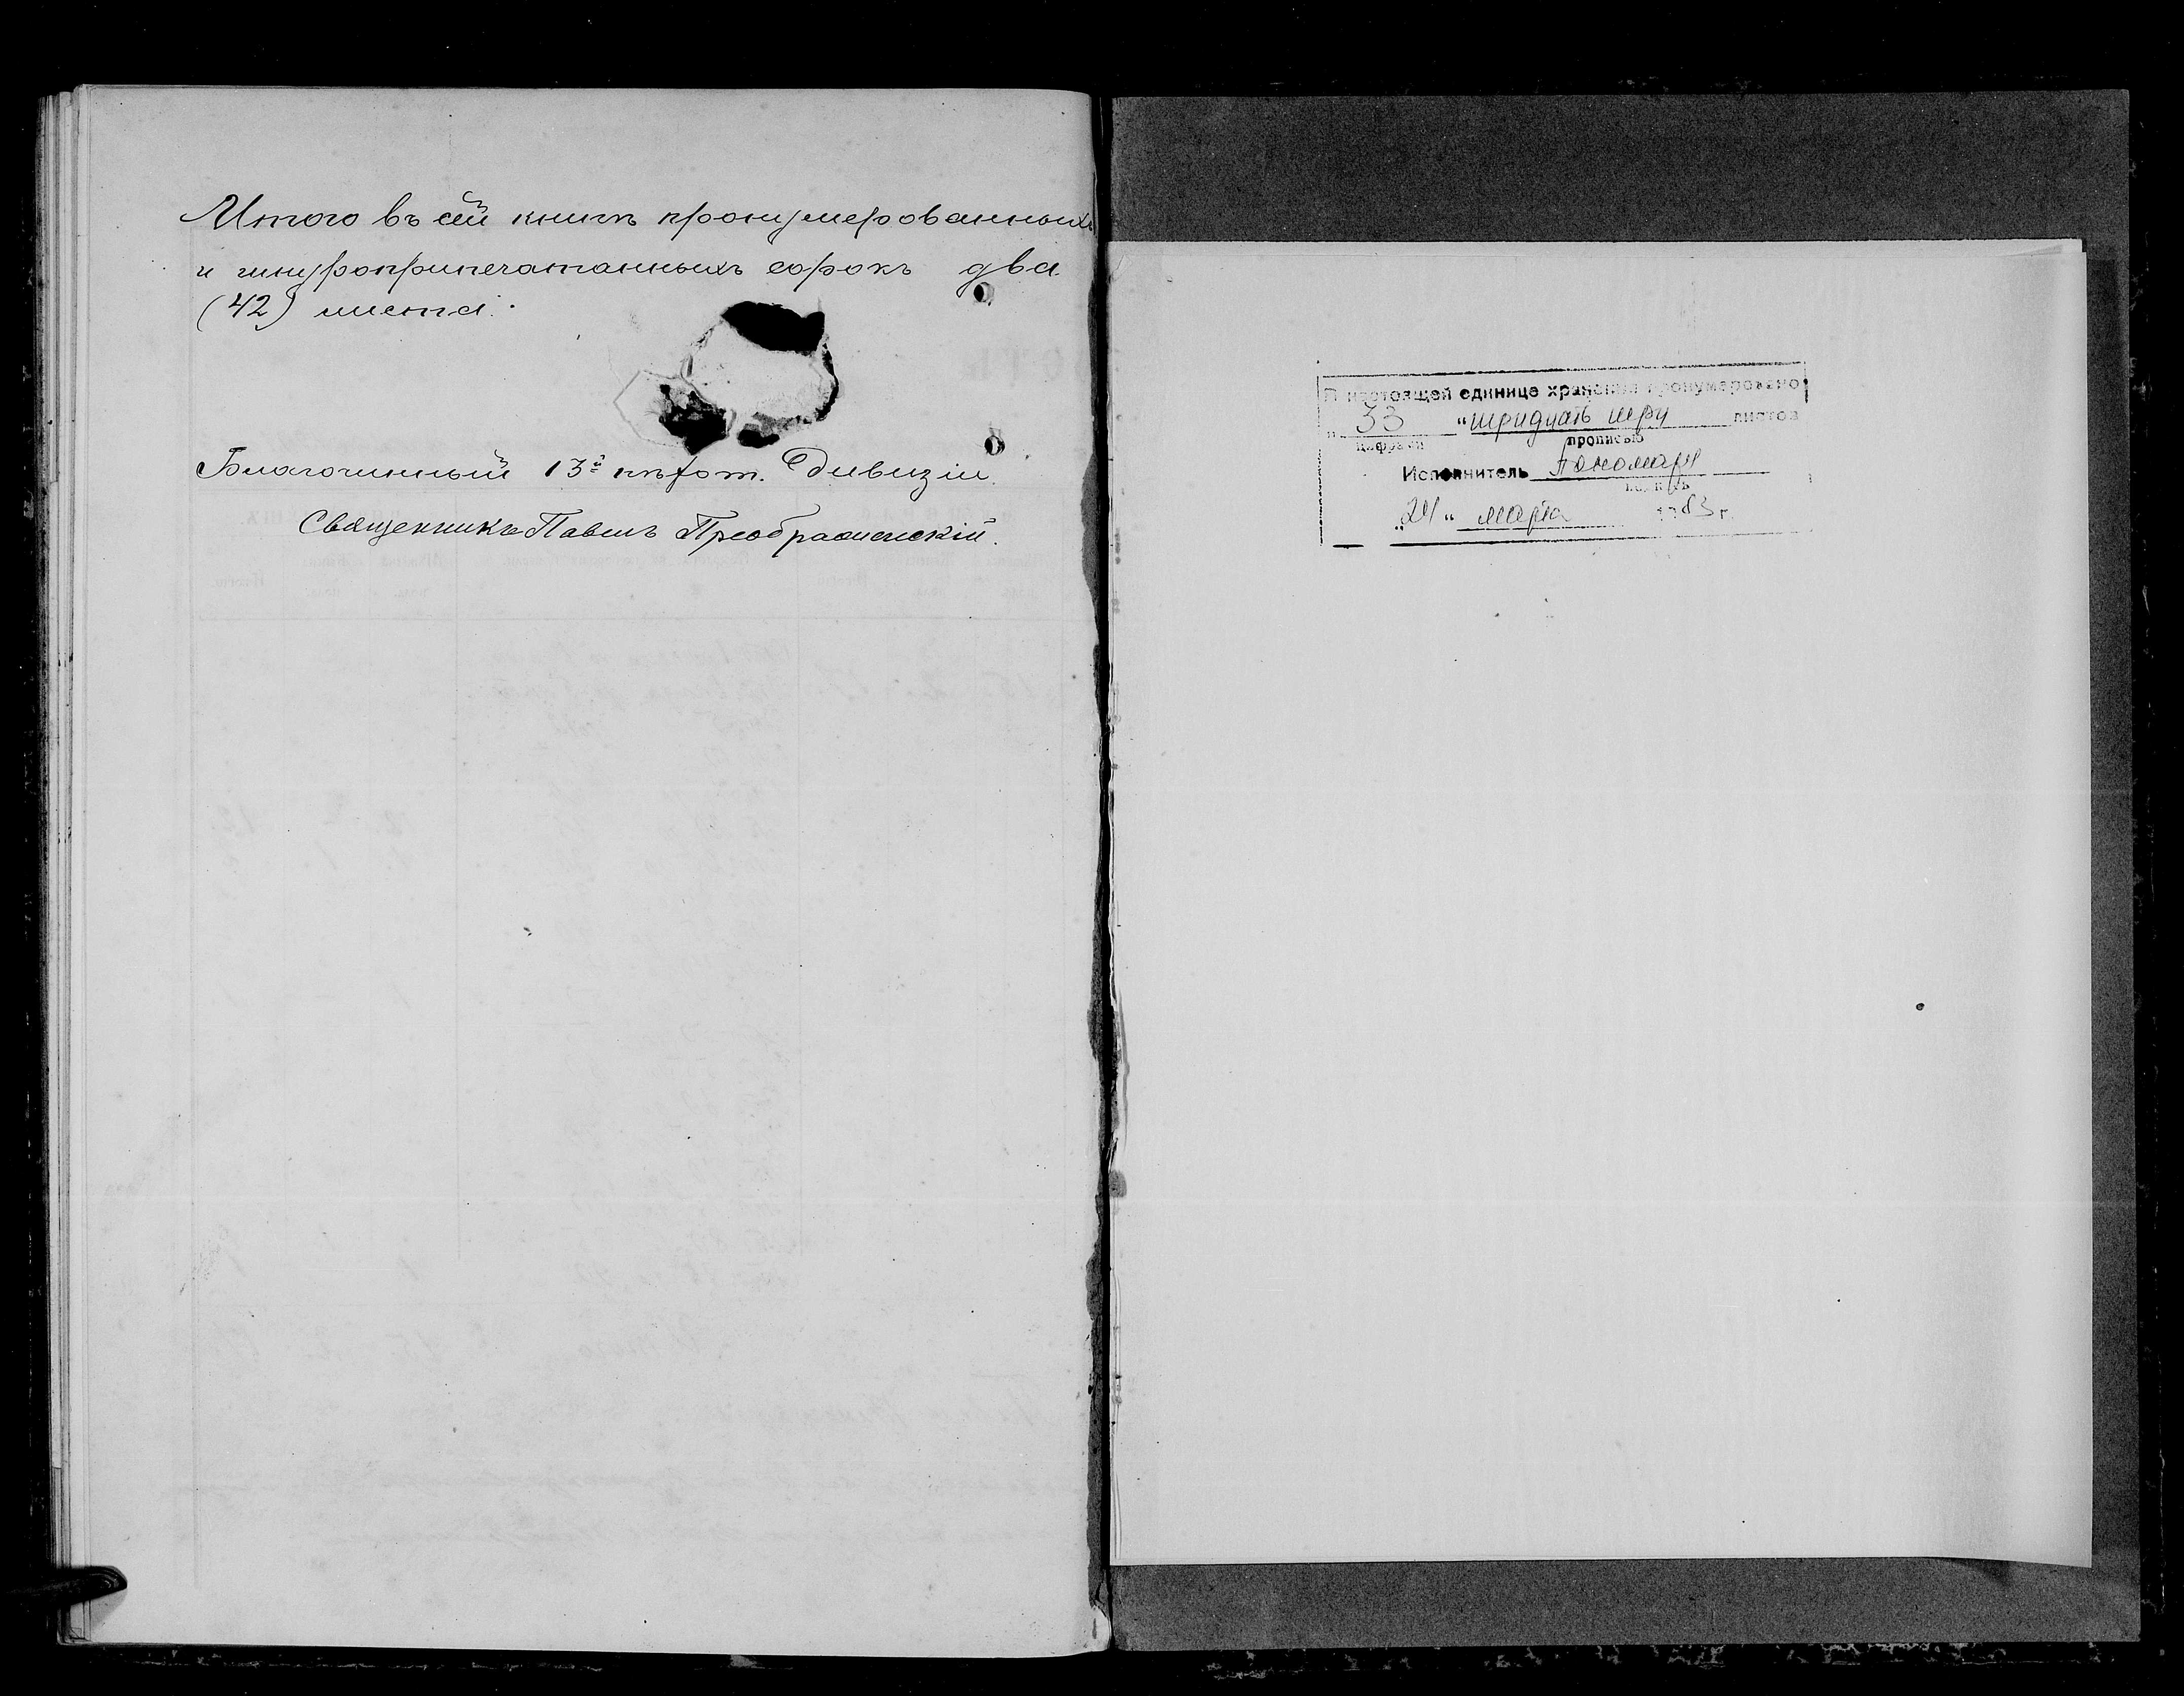 Итого въ сей книгѣ пронумерованныхъ
и шнуроприпечатанныхъ сорокъ два
(42) листа.
Благочинный 13й пѣхот. Дивизіи
Священникъ Павелъ Преображенскій.
В настоящей единице хранения пронумеровано
„ 33 “ тридцать три листов
цифрой прописью
Исполнитель Пономарь
„24“ марта 1983 г.